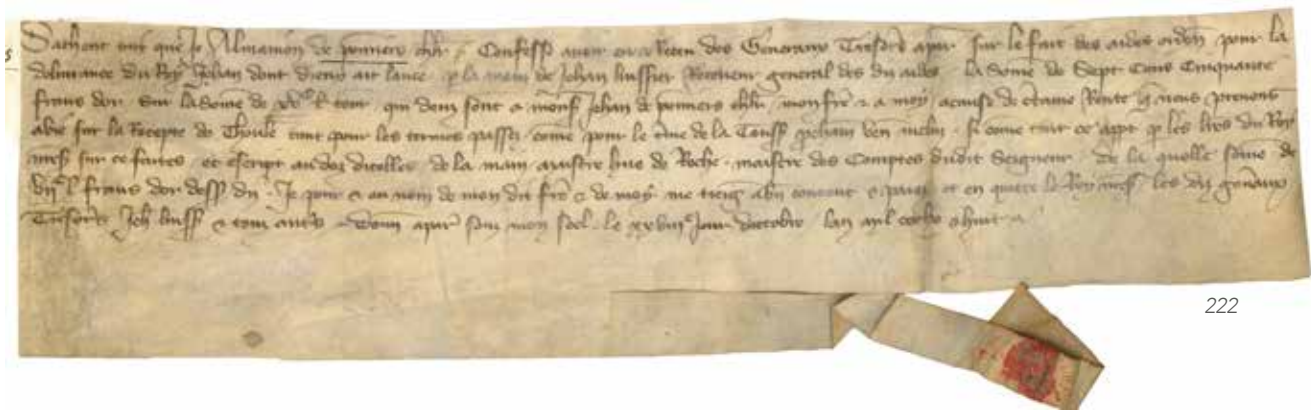 Sachent tuit que Je Almamon de pomiers chlr Confesse avoir eu & Receu des Generaux Tresors apar sur le fait des aides orden pour la
delivrance du Roy Jehan dont dieux ait lame p la main de Jehan luissier Receveur general des diz aides la Some de Sept Cens Cinquante
frans dor Sur la Some de qui deuz sont a mons Jehan de pomiers chlr mon frere & a moy acause de certaine Rente q nous prenons
sur la Recepte de tant pour les termes passez come pour le de la Touss prcham ven si come tout ce appt p les lres du Roy
nres sur ce faites et escript au doz dicelles de la main maistre de Roche maistre des Comptes dudit Seigneur De la quelle Some de
vijc l frans dor dess Je pour & ou nom de mon dit frere & de moy me tieng abn content & paiez et en quitte le Roy nress les diz genaux
Tresors Jeh luiss & touz autres Donn apar souz mon seel le xxviije Jour doctobre lan mil ccclx & huit
222